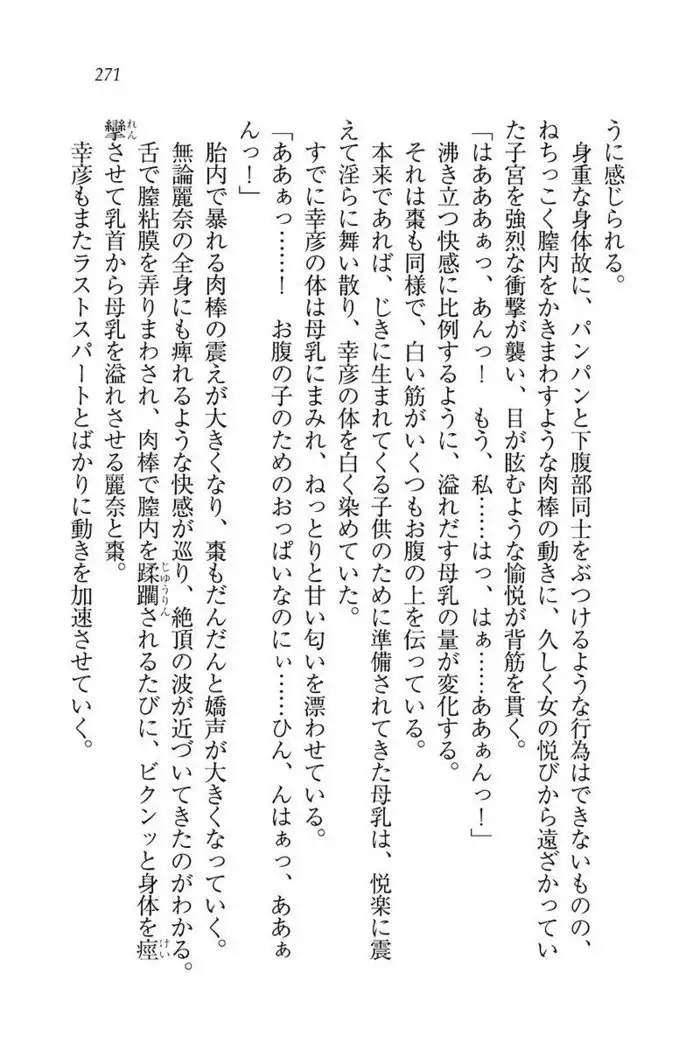 271
うに感じられる。
身重な身体故に、パンパンと下腹部同士をぶつけるような行為はできないものの、
ねちっこく膣内をかきまわすような肉棒の動きに、久しく女の悦びから遠ざかってい
た子宮を強烈な衝撃が襲い、目が眩むような愉悦が背筋を貫く。
「はあああぁっ、あんっ！　もう、私……はっ、はぁ……ああぁんっ！」
沸き立つ快感に比例するように、溢れだす母乳の量が変化する。
それは棗も同様で、白い筋がいくつもお腹の上を伝っている。
本来であれば、じきに生まれてくる子供のために準備されてきた母乳は、悦楽に震
えて淫らに舞い散り、幸彦の体を白く染めていた。
すでに幸彦の体は母乳にまみれ、ねっとりと甘い匂いを漂わせている。
「ああぁっ……！　お腹の子のためのおっぱいなのにぃ……ひん、んはぁっ、ああぁ
んっ！」
胎内で暴れる肉棒の震えが大きくなり、棗もだんだんと嬌声が大きくなっていく。
無論麗奈の全身にも痺れるような快感が巡り、絶頂の波が近づいてきたのがわかる。
舌で膣粘膜を弄りまわされ、肉棒で膣内を蹂躙じゅうりんされるたびに、ビクンッと身体を痙けい
攣れんさせて乳首から母乳を溢れさせる麗奈と棗。
幸彦もまたラストスパートとばかりに動きを加速させていく。